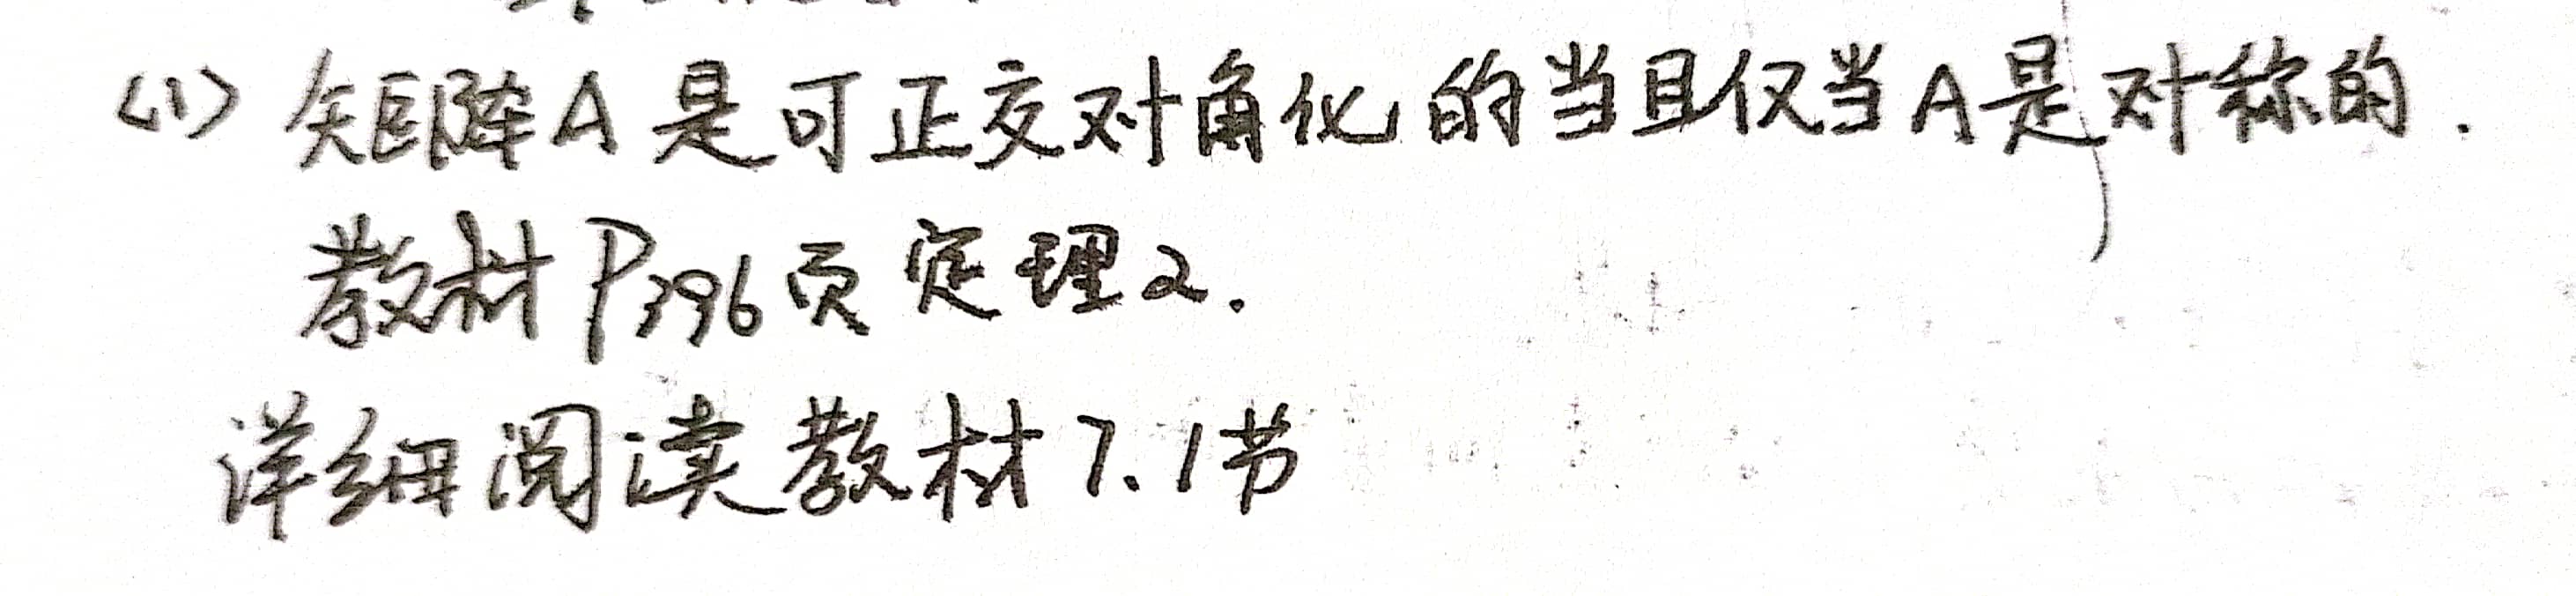 (1) 矩阵A是可正交对角化的当且仅当A是对称的.
教材P396页定理2.
详细阅读教材7.1节